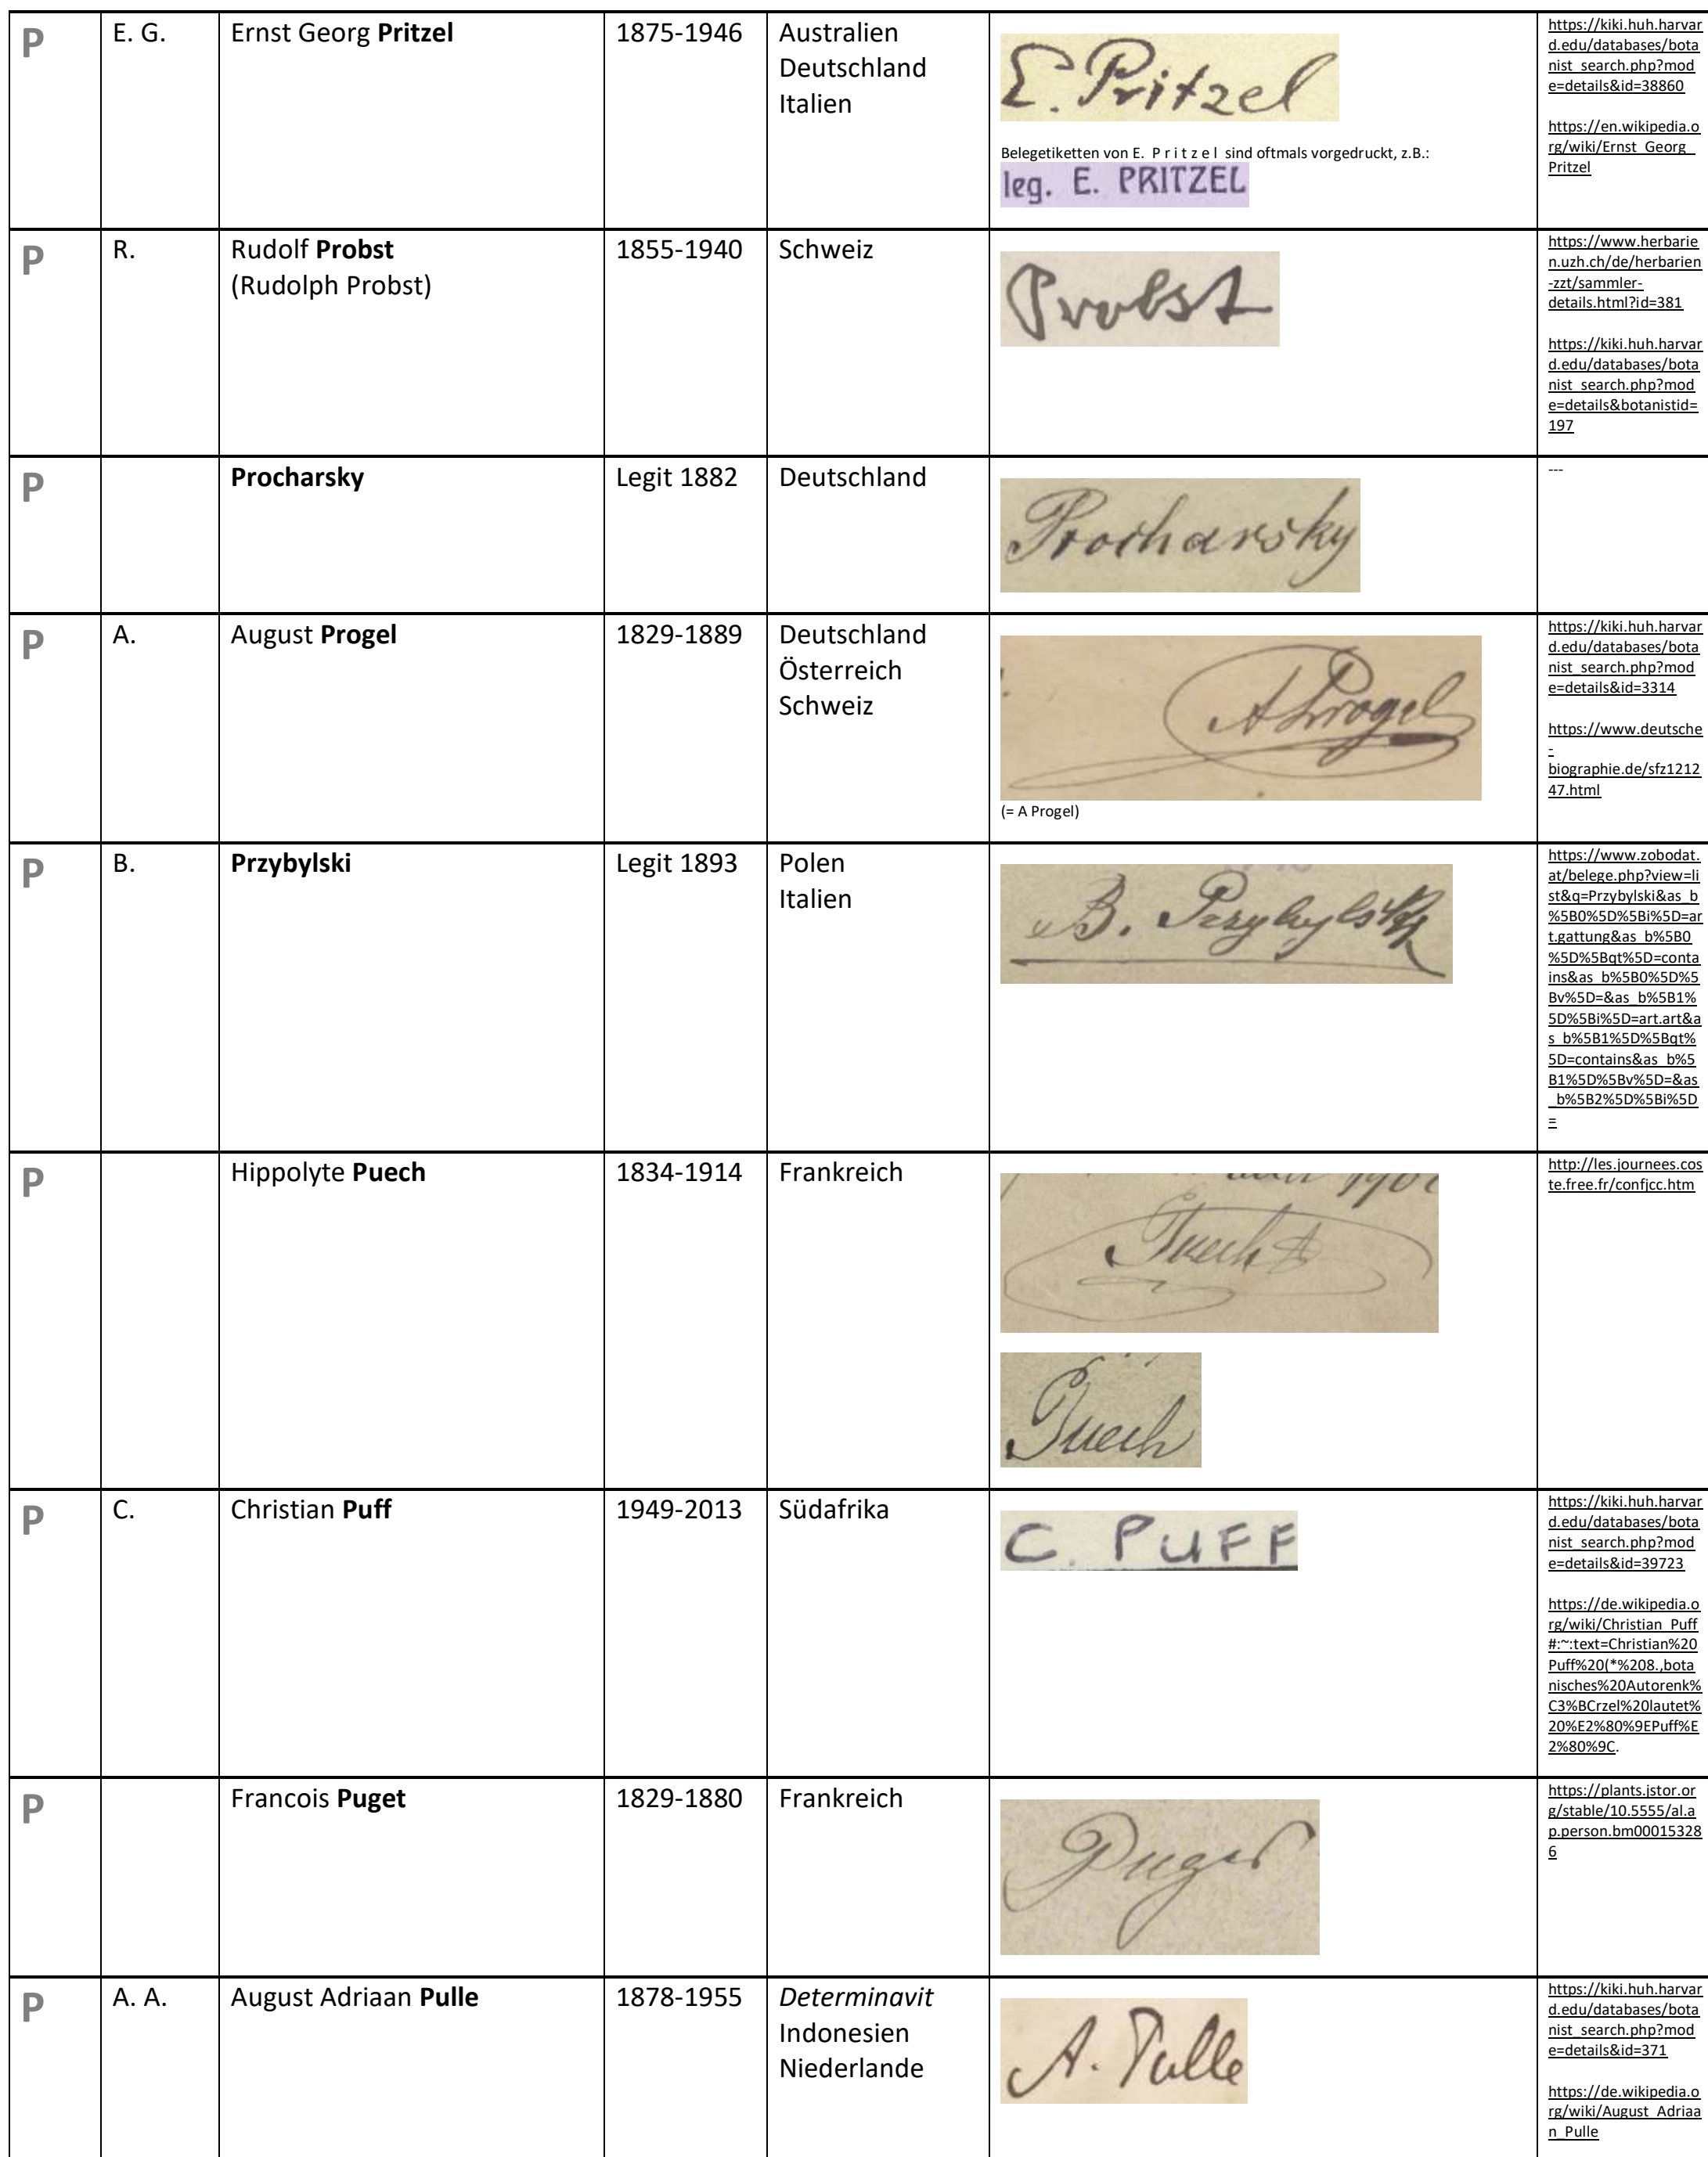 P E. G. Ernst Georg Pritzel 1875-1946 Australien
Deutschland
Italien
E. Pritzel
Belegetiketten von E. P r i t z e l sind oftmals vorgedruckt, z.B.:
leg. E. PRITZEL
https://kiki.huh.harvar
d.edu/databases/bota
nist_search.php?mod
e=details&id=38860
https://en.wikipedia.o
rg/wiki/Ernst_Georg_
Pritzel
P R. Rudolf Probst 1855-1940 Schweiz
(Rudolph Probst)
Probst
https://www.herbarie
n.uzh.ch/de/herbarien
-zzt/sammler-
details.html?id=381
https://kiki.huh.harvar
d.edu/databases/bota
nist_search.php?mod
e=details&botanistid=
197
P Procharsky Legit 1882 Deutschland
Procharsky
---
P A. August Progel 1829-1889 Deutschland
Österreich
Schweiz
A Progel
(= A Progel)
https://kiki.huh.harvar
d.edu/databases/bota
nist_search.php?mod
e=details&id=3314
https://www.deutsche
-
biographie.de/sfz1212
47.html
P B. Przybylski Legit 1893 Polen
Italien
B. Przybylski
https://www.zobodat.
at/belege.php?view=li
st&q=Przybylski&as_b
%5B0%5D%5Bi%5D=ar
t.gattung&as_b%5B0
%5D%5Bqt%5D=conta
ins&as_b%5B0%5D%5
Bv%5D=&as_b%5B1%
5D%5Bi%5D=art.art&a
s_b%5B1%5D%5Bqt%
5D=contains&as_b%5
B1%5D%5Bv%5D=&as
_b%5B2%5D%5Bi%5D
=
P Hippolyte Puech 1834-1914 Frankreich
Puech
Puech
http://les.journees.cos
te.free.fr/confjcc.htm
P C. Christian Puff 1949-2013 Südafrika
C. PUFF
https://kiki.huh.harvar
d.edu/databases/bota
nist_search.php?mod
e=details&id=39723
https://de.wikipedia.o
rg/wiki/Christian_Puff
#:~:text=Christian%20
Puff%20(*%208.,bota
nisches%20Autorenk%
C3%BCrzel%20lautet%
20%E2%80%9EPuff%E
2%80%9C.
P Francois Puget 1829-1880 Frankreich
Puget
https://plants.jstor.or
g/stable/10.5555/al.a
p.person.bm00015328
6
P A. A. August Adriaan Pulle 1878-1955 Determinavit
Indonesien
Niederlande
A. Pulle
https://kiki.huh.harvar
d.edu/databases/bota
nist_search.php?mod
e=details&id=371
https://de.wikipedia.o
rg/wiki/August_Adriaa
n_Pulle